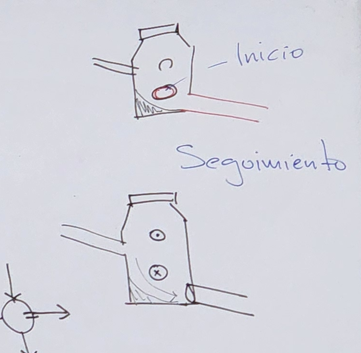 Inicio
Seguimiento